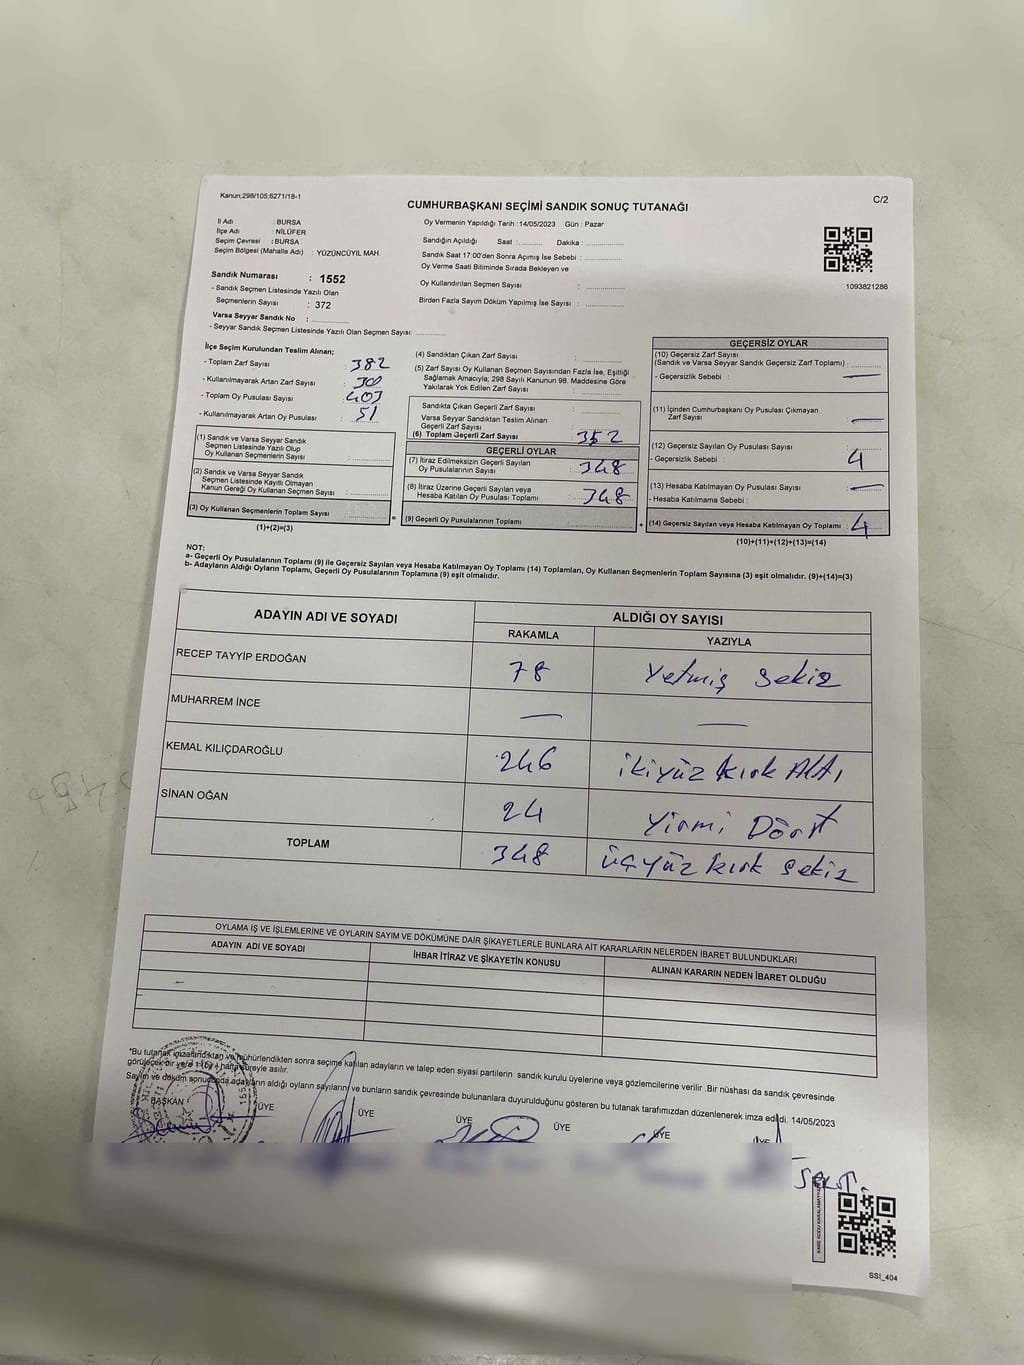 Kanun;298/105;6271/18-1
C/2
CUMHURBAŞKANI SEÇİMİ SANDIK SONUÇ TUTANAĞI
İl Adı : BURSA
İlçe Adı : NİLÜFER
Seçim Çevresi : BURSA
Seçim Bölgesi (Mahalle Adı) : YÜZÜNCÜYIL MAH.
Oy Vermenin Yapıldığı Tarih :14/05/2023 Gün : Pazar
Sandığın Açıldığı Saat :........ Dakika :............
Sandık Saat 17:00'den Sonra Açımış İse Sebebi :............
Oy Verme Saati Bitiminde Sırada Bekleyen ve
Oy Kullandırılan Seçmen Sayısı :............
Birden Fazla Sayım Döküm Yapılmış İse Sayısı :............
1093821286
Sandık Numarası : 1552
- Sandık Seçmen Listesinde Yazılı Olan
Seçmenlerin Sayısı : 372
Varsa Seyyar Sandık No :............
- Seyyar Sandık Seçmen Listesinde Yazılı Olan Seçmen Sayısı:............
İlçe Seçim Kurulundan Teslim Alınan;
- Toplam Zarf Sayısı : 382
- Kullanılmayarak Artan Zarf Sayısı :
- Toplam Oy Pusulası Sayısı : 403
- Kullanılmayarak Artan Oy Pusulası : 51
(1) Sandık ve Varsa Seyyar Sandık
Seçmen Listesinde Yazılı Olup
Oy Kullanan Seçmenlerin Sayısı :............
(2) Sandık ve Varsa Seyyar Sandık
Seçmen Listesinde Kaydı Olmayan
Kanun Gereği Oy Kullanan Seçmen Sayısı :............
(3) Oy Kullanan Seçmenlerin Toplam Sayısı :............
(1)+(2)=(3)
(4) Sandıktan Çıkan Zarf Sayısı :............
(5) Zarf Sayısı Oy Kullanan Seçmen Sayısından Fazla İse, Eşitliği
Sağlamak Amacıyla; 298 Sayılı Kanunun 98. Maddesine Göre
Yakılarak Yok Edilen Zarf Sayısı :............
Sandıkta Çıkan Geçerli Zarf Sayısı :............
Varsa Seyyar Sandıktan Teslim Alınan
Geçerli Zarf Sayısı :............
(6) Toplam Geçerli Zarf Sayısı : 352
GEÇERLİ OYLAR
(7) İtiraz Edilmeksizin Geçerli Sayılan
Oy Pusulalarının Sayısı : 348
(8) İtiraz Üzerine Geçerli Sayılan veya
Hesaba Katılan Oy Pusulası Toplamı : 348
= (9) Geçerli Oy Pusulalarının Toplamı :............ +
GEÇERSİZ OYLAR
(10) Geçersiz Zarf Sayısı
(Sandık ve Varsa Seyyar Sandık Geçersiz Zarf Toplamı) :............
- Geçersizlik Sebebi : —
(11) İçinden Cumhurbaşkanı Oy Pusulası Çıkmayan
Zarf Sayısı : —
(12) Geçersiz Sayılan Oy Pusulası Sayısı :
- Geçersizlik Sebebi : 4
(13) Hesaba Katılmayan Oy Pusulası Sayısı : —
- Hesaba Katılmama Sebebi :
(14) Geçersiz Sayılan veya Hesaba Katılmayan Oy Toplamı : 4
(10)+(11)+(12)+(13)=(14)
NOT:
a- Geçerli Oy Pusulalarının Toplamı (9) ile Geçersiz Sayılan veya Hesaba Katılmayan Oy Toplamı (14) Toplamları, Oy Kullanan Seçmenlerin Toplam Sayısına (3) eşit olmalıdır. (9)+(14)=(3)
b- Adayların Aldığı Oyların Toplamı, Geçerli Oy Pusulalarının Toplamına (9) eşit olmalıdır.
ADAYIN ADI VE SOYADI ALDIĞI OY SAYISI
RAKAMLA YAZIYLA
RECEP TAYYİP ERDOĞAN 78 Yetmiş Sekiz
MUHARREM İNCE — —
KEMAL KILIÇDAROĞLU 246 ikiyüz kırk Altı
SİNAN OĞAN 24 Yirmi Dört
TOPLAM 348 üçyüz kırk Sekiz
OYLAMA İŞ VE İŞLEMLERİNE VE OYLARIN SAYIM VE DÖKÜMÜNE DAİR ŞİKAYETLERLE BUNLARA AİT KARARLARIN NELERDEN İBARET BULUNDUKLARI
ADAYIN ADI VE SOYADI İHBAR İTİRAZ VE ŞİKAYETİN KONUSU ALINAN KARARIN NEDEN İBARET OLDUĞU
*Bu tutanak imzalandıktan ve mühürlendikten sonra seçime katılan adayların ve talep eden siyasi partilerin sandık kurulu üyelerine veya gözlemcilerine verilir .Bir nüshası da sandık çevresinde
görülecek bir yere 1 (bir) hafta süreyle asılır.
Sayım ve döküm sonucunda adayların aldığı oyların sayılarını ve bunların sandık çevresinde bulunanlara duyurulduğunu gösteren bu tutanak tarafımızdan düzenlenerek imza edildi. 14/05/2023
BAŞKAN ÜYE ÜYE ÜYE ÜYE ÜYE ÜYE
SSI_404